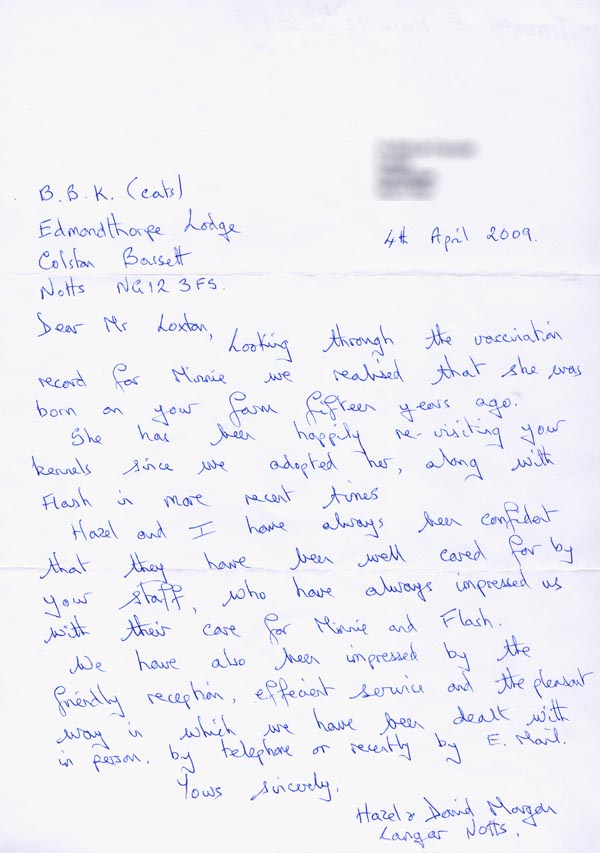 B.B.K. (cats)
Edmondthorpe Lodge
4th April 2009.
Colston Bassett
Notts NG12 3FS.
Dear Mr Loxton,
Looking through the vaccination
record for Minnie we realised that she was
born on your farm fifteen years ago.
She has been happily re-visiting your
kennels since we adopted her, along with
Flash in more recent times
Hazel and I have always been confident
that they have been well cared for by
your staff, who have always impressed us
with their care for Minnie and Flash.
We have also been impressed by the
friendly reception, effecient service and the pleasant
way in which we have been dealt with
in person, by telephone or recently by E. Mail.
Yours sincerely,
Hazel & David Morgan
Langar Notts.